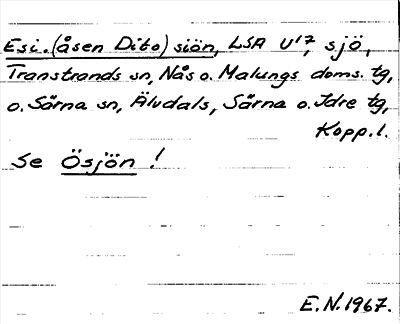 Esi. (åsen Dito) siön, LSA U¹⁷, sjö,
Transtrands sn, Nås o. Malungs doms. tg,
o. Särna sn, Älvdals, Särna o. Idre tg,
Kopp. l.
Se Ösjön !
E. N. 1967.